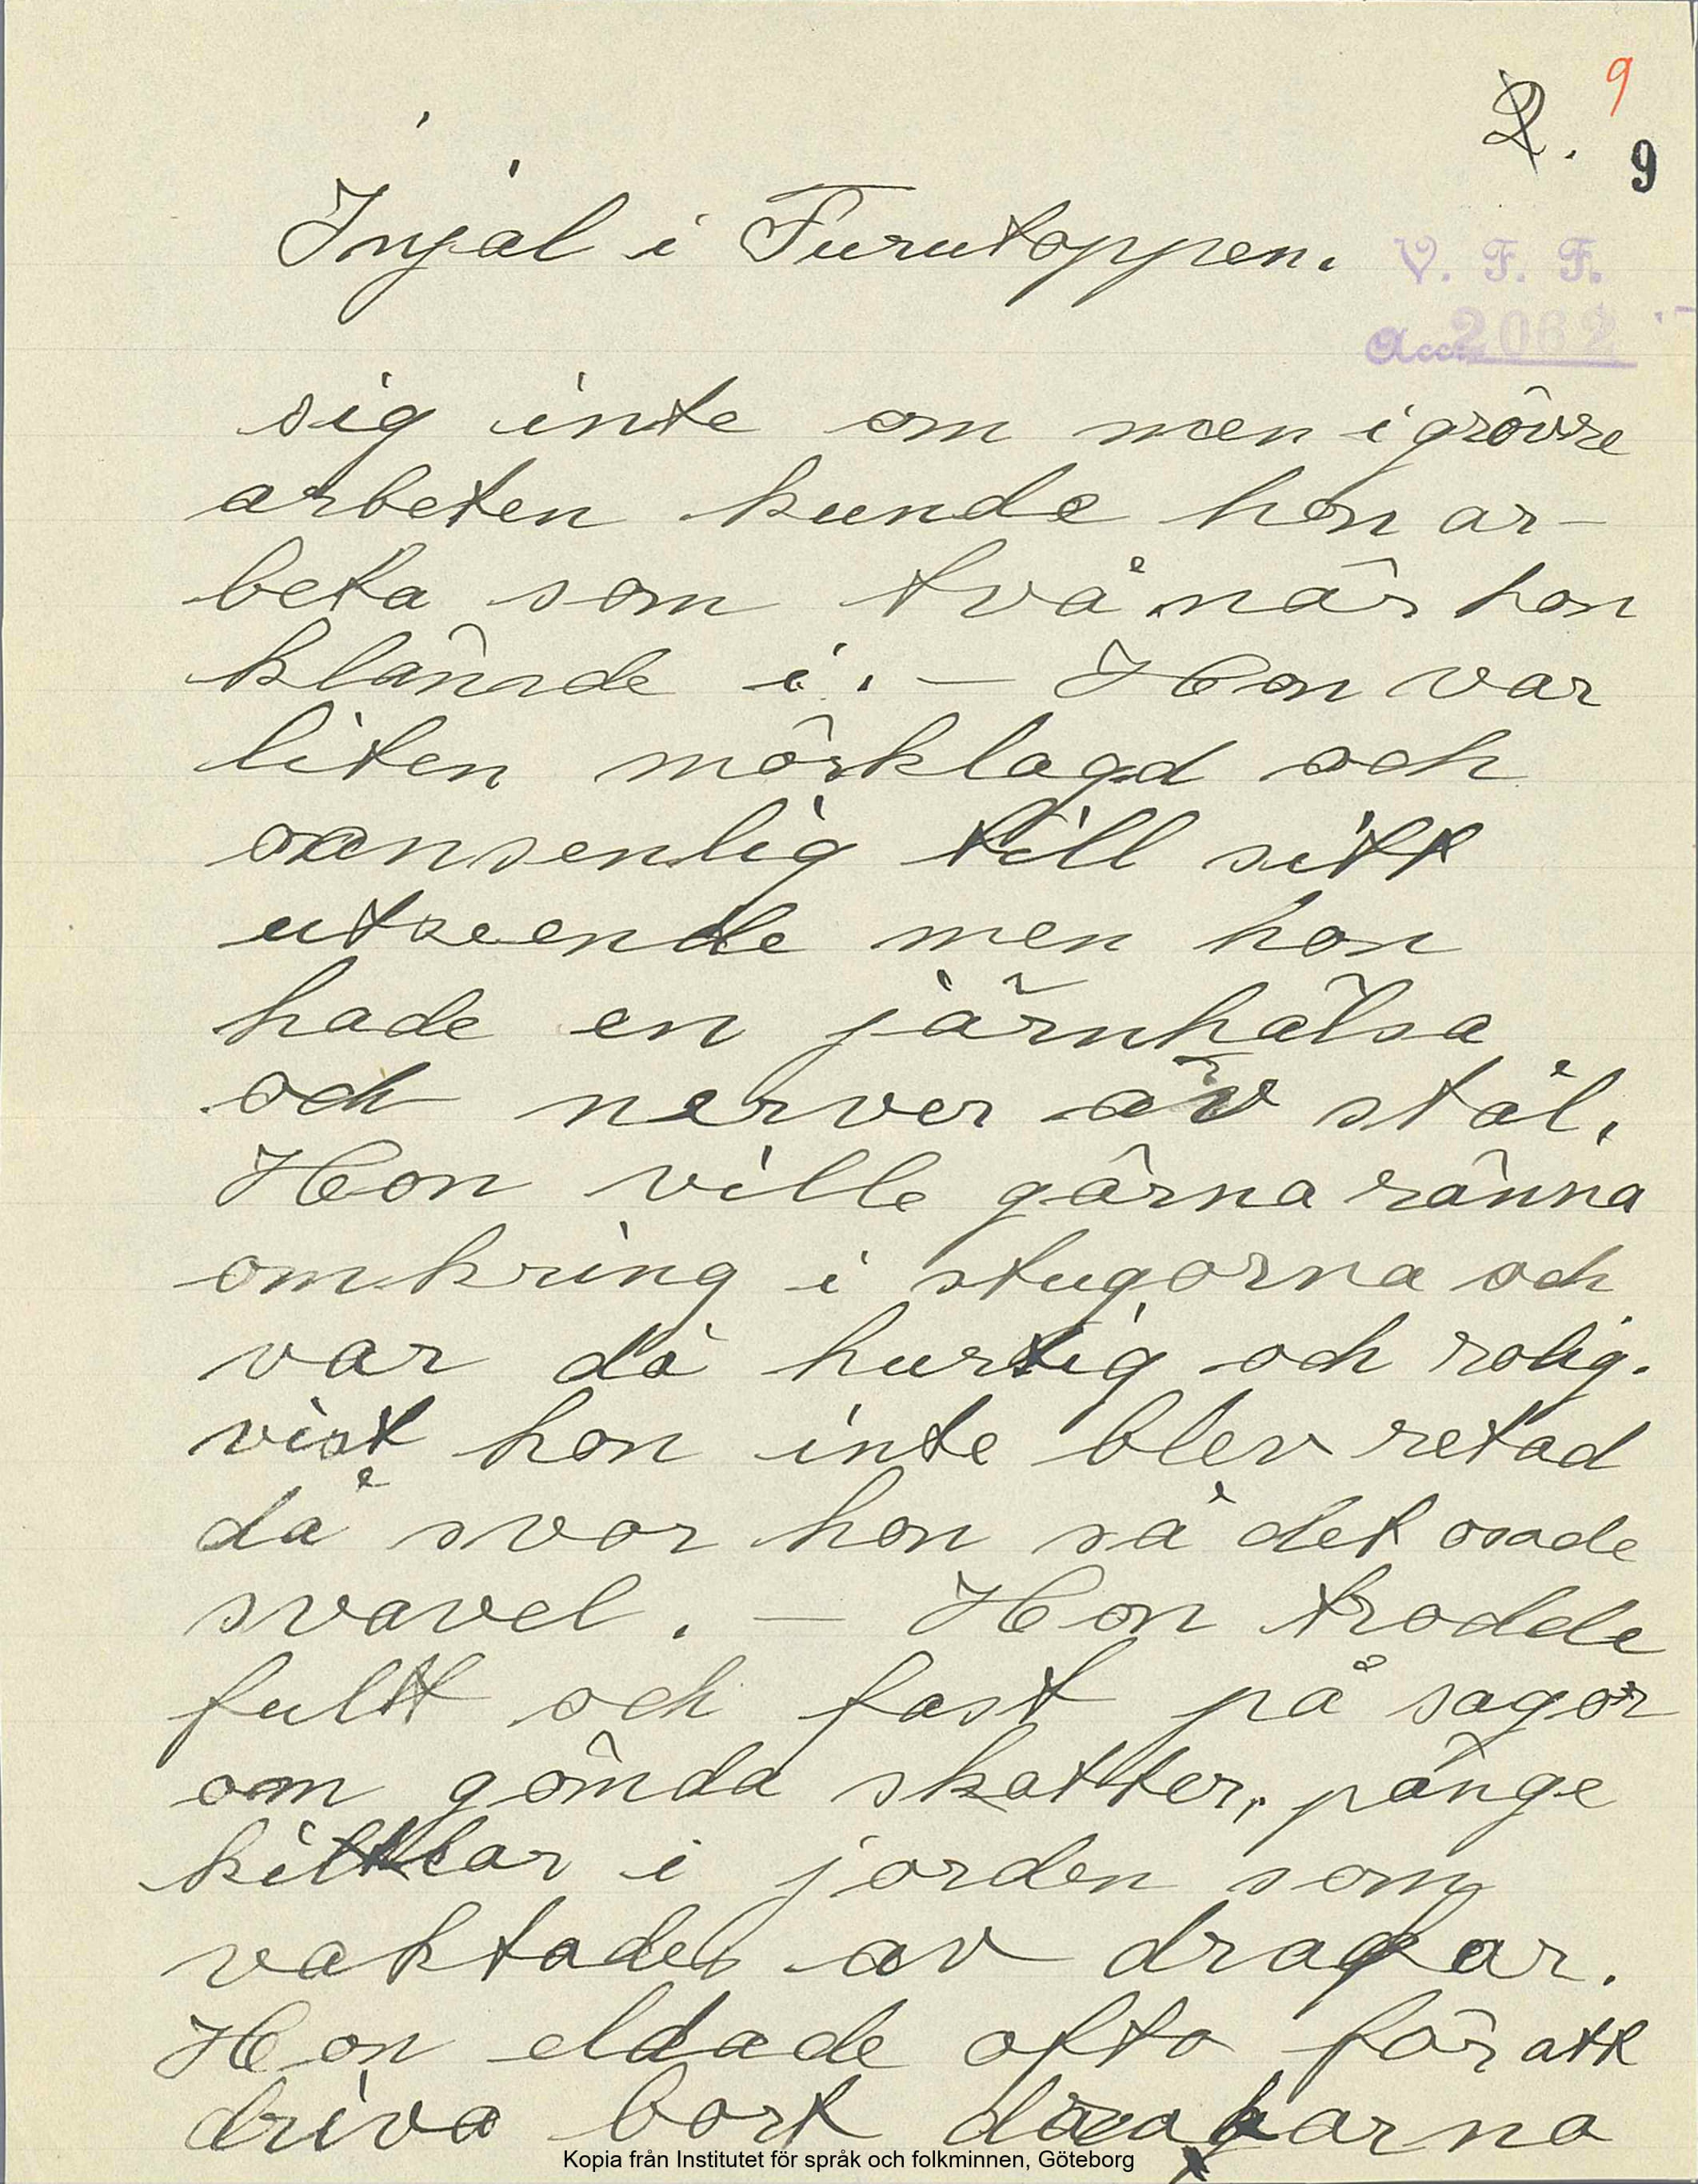 2. 9
9
Injal i Furutoppen.
V. F. F.
Acc. 2062
sig inte om men i grövre
arbeten kunde hon ar-
beta som två när hon
klämde i. — Hon var
liten mörklagd och
oansenlig till sitt
utseende men hon
hade en järnhälsa
och nerver av stål.
Hon ville gärna ränna
omkring i stugorna och
var då hurtig och rolig.
vist hon inte blev retad
då svor hon så det osade
svavel. — Hon trodde
fullt och fast på sagor
om gömda skatter, pänge
kittlar i jorden som
vaktades av drakar.
Hon eldade ofta för att
driva bort drakarna
Kopia från Institutet för språk och folkminnen, Göteborg